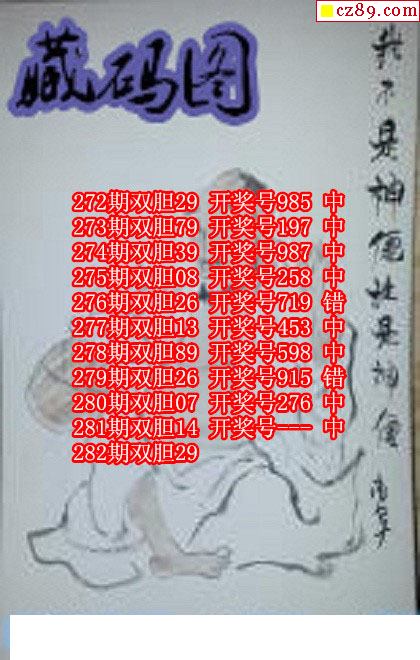 cz89.com
藏码图
我不是神但社是神僧
272期双胆29 开奖号985 中
273期双胆79 开奖号197 中
274期双胆39 开奖号987 中
275期双胆08 开奖号258 中
276期双胆26 开奖号719 错
277期双胆13 开奖号453 中
278期双胆89 开奖号598 中
279期双胆26 开奖号915 错
280期双胆07 开奖号276 中
281期双胆14 开奖号--- 中
282期双胆29